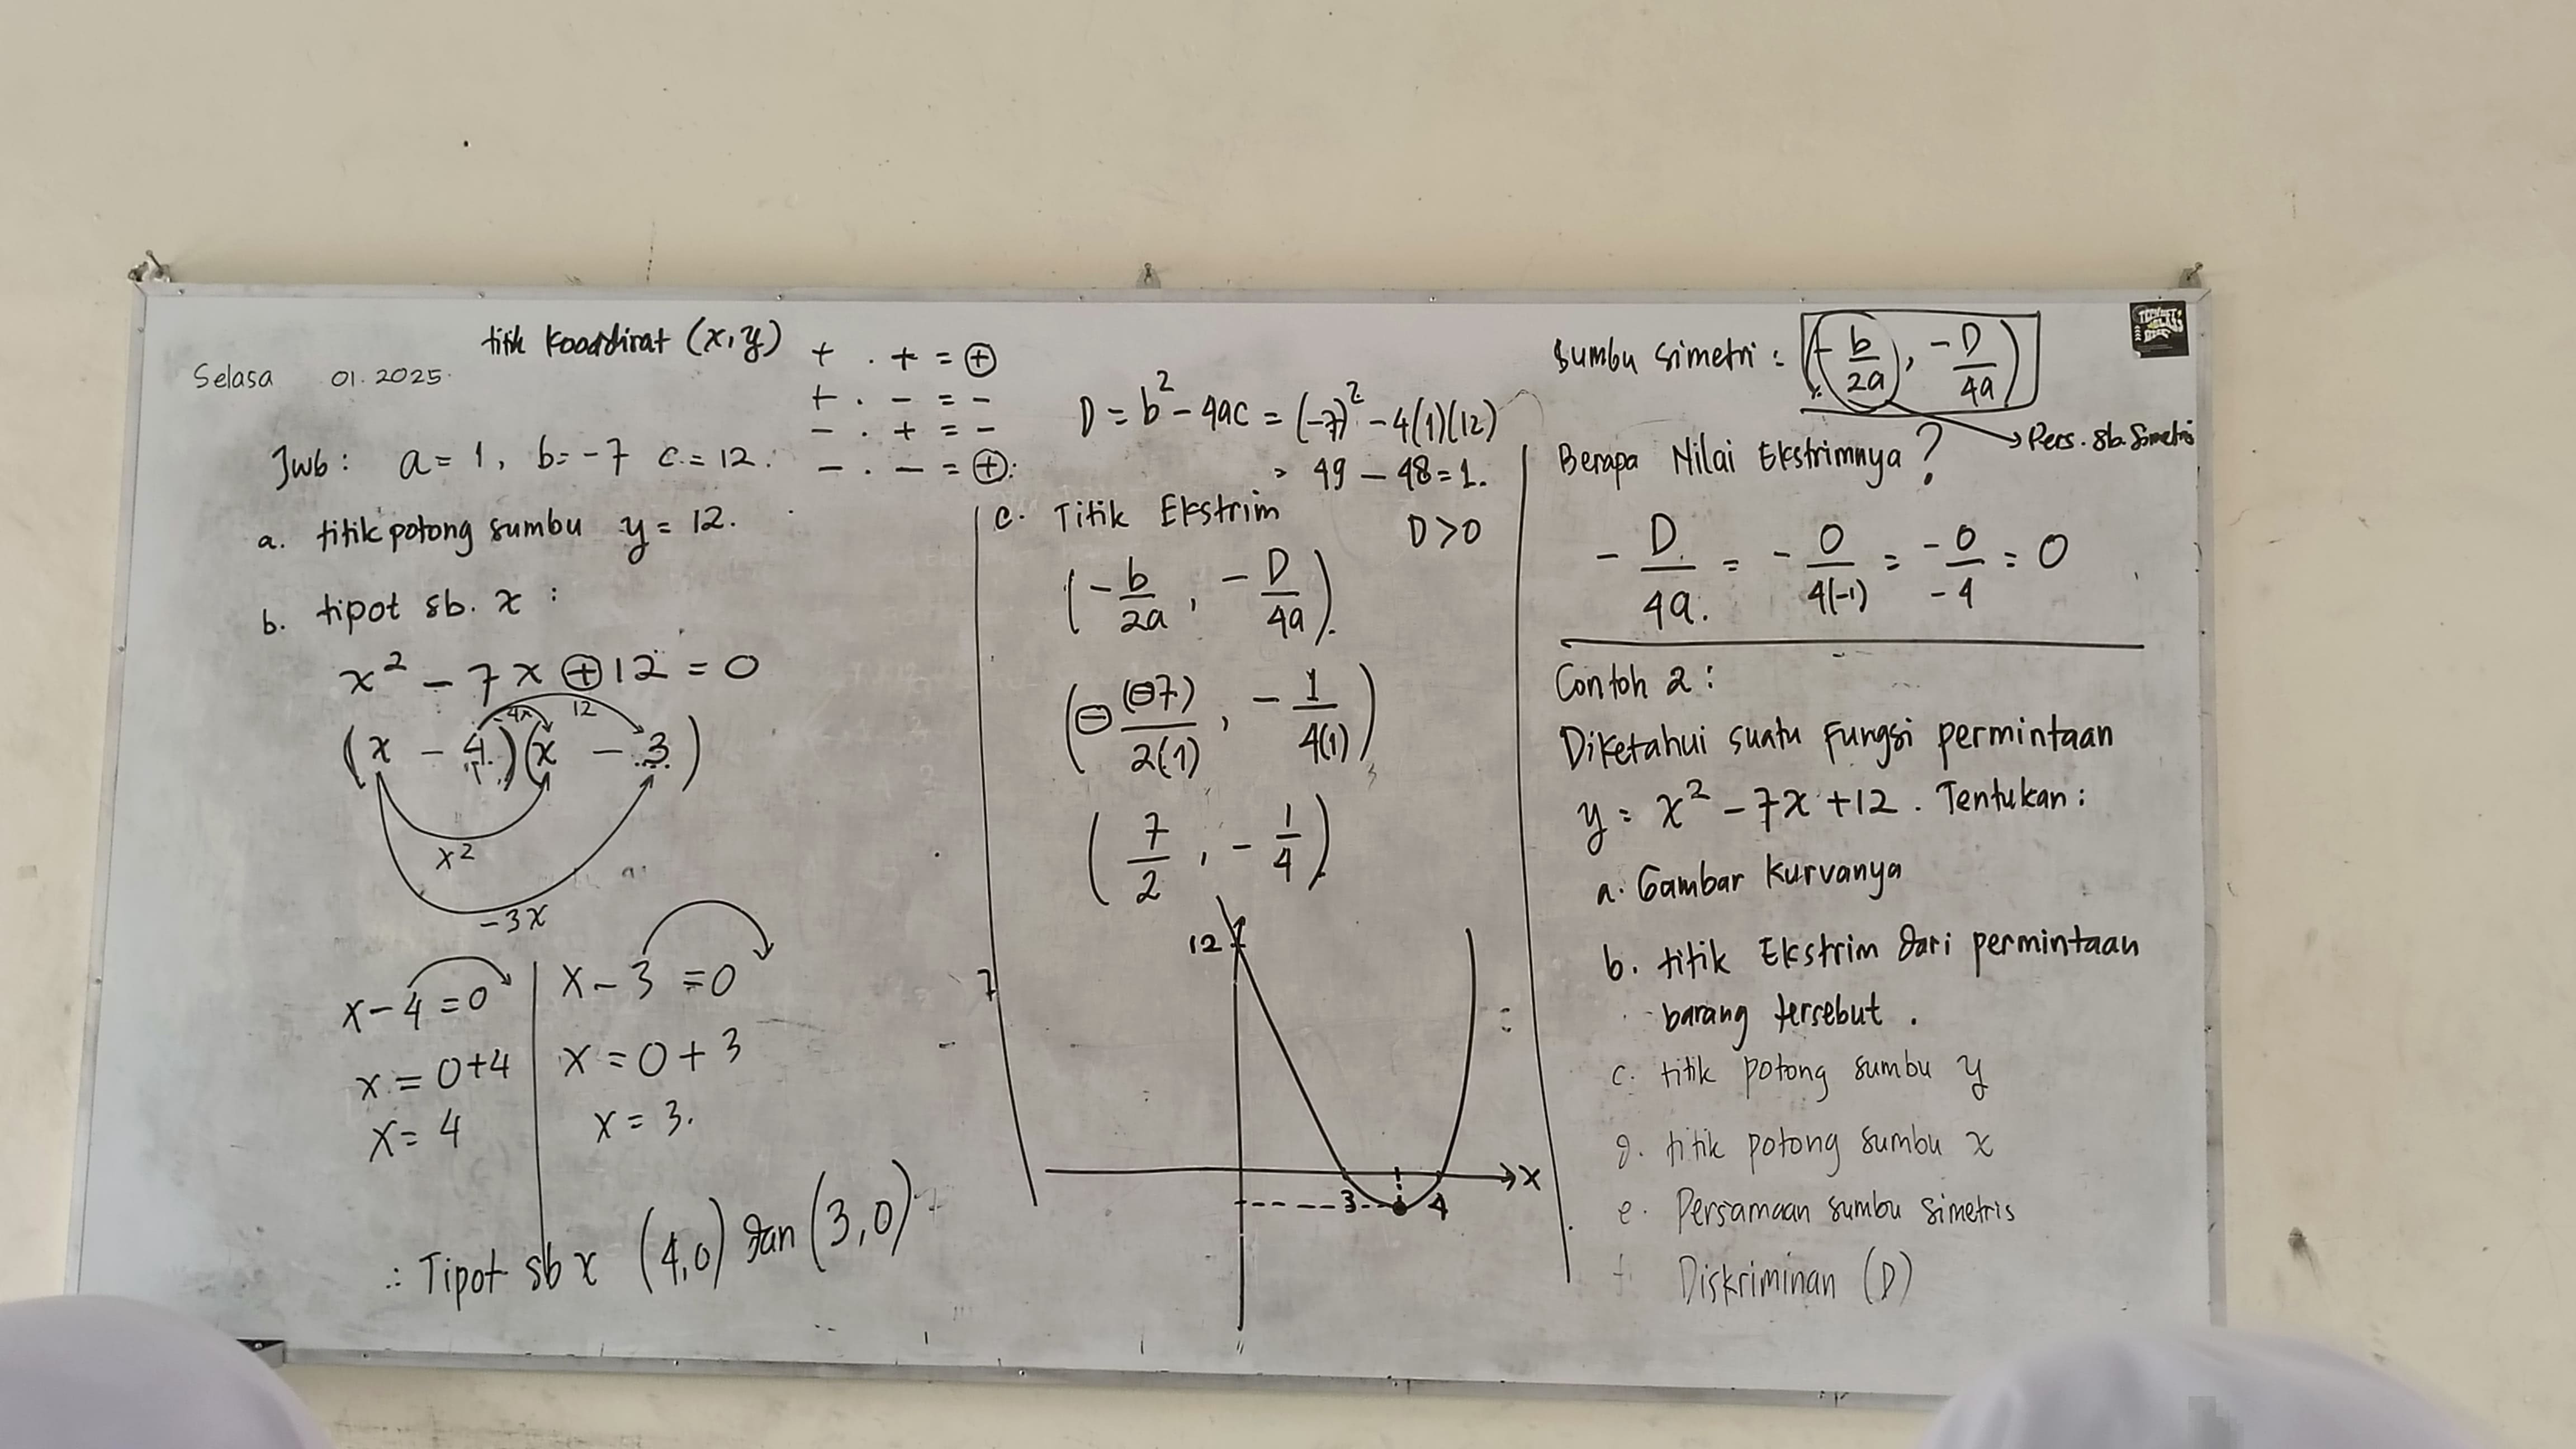 titik koordinat (x, y)
Selasa 01. 2025.
+ . + = ⊕
+ . − = −
− . + = −
− . − = ⊕.
Jwb : a = 1, b = −7 c = 12.
a. titik potong sumbu y = 12.
b. tipot sb. x :
x² − 7x ⊕ 12 = 0
−4x 12
(x − 4)(x − 3)
x²
−3x
x − 4 = 0
x = 0+4
x = 4
x − 3 = 0
x = 0 + 3
x = 3.
∴ Tipot sb x (4,0) dan (3,0)
D = b² − 4ac = (−7)² − 4(1)(12)
= 49 − 48 = 1.
D > 0
c. Titik Ekstrim
(−b/2a , −D/4a).
(⊖(⊖7)/2(1) , −1/4(1))
(7/2 , −1/4)
12
7
3 4
x
Sumbu Simetri : (−b/2a , −D/4a)
Pers. sb. Simetri
Berapa Nilai Ekstrimnya ?
−D/4a. = −0/4(−1) = −0/−4 = 0
Contoh 2 :
Diketahui suatu Fungsi permintaan
y = x² − 7x + 12. Tentukan :
a. Gambar Kurvanya
b. titik Ekstrim dari permintaan
barang tersebut .
c. titik potong sumbu y
d. titik potong sumbu x
e. Persamaan sumbu simetris
f. Diskriminan (D)